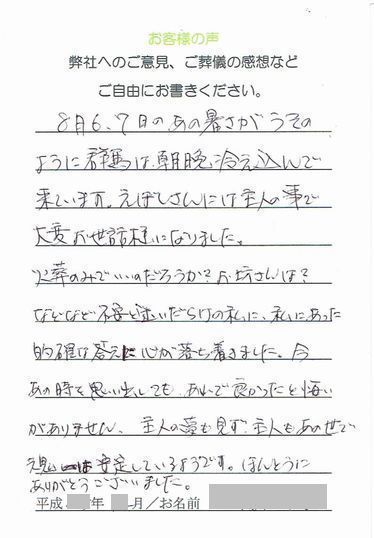 お客様の声
弊社へのご意見、ご葬儀の感想など
ご自由にお書きください。
8月6、7日のあの暑さがうその
ように群馬は朝晩冷え込んで
来ています。えぼしさんには主人の事で
大変お世話様になりました。
火葬のみでいいのだろうか?お坊さんは?
などなど不安と迷いだらけの私に、私にあった
的確な答えに心が落ち着きました。今
あの時を思い出しても、あれで良かったと悔い
がありません、主人の も見ず、主人もあのせで
は安定しているようです。ほんとうに
ありがとうございました。
平成 年 月/お名前